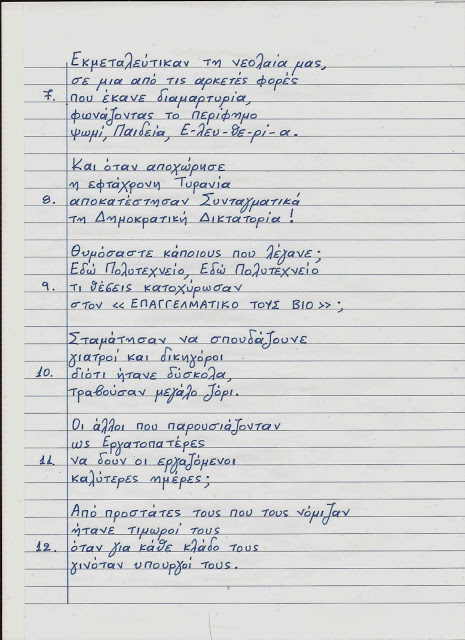 Εκμεταλεύτικαν τη νεολαία μας,
σε μια από τις αρκετές φορές
7. που έκανε διαμαρτυρία,
φωνάζοντας το περίφημο
ψωμί, Παιδεία, Ε-λευ-θε-ρί-α.
Και όταν αποχώρησε
η εφτάχρονη Τυρανία
8. αποκατέστησαν Συνταγματικά
τη Δημοκρατική Δικτατορία!
Θυμόσαστε κάποιους που λέγανε;
Εδώ Πολυτεχνείο, Εδώ Πολυτεχνείο
9. τι θέσεις κατοχύρωσαν
στον «ΕΠΑΓΓΕΛΜΑΤΙΚΟ ΤΟΥΣ ΒΙΟ»;
Σταμάτησαν να σπουδάζουνε
γιατροί και δικηγόροι
10. διότι ήτανε δύσκολα,
τραβούσαν μεγάλο ζόρι.
Οι άλλοι που παρουσιάζονταν
ως Εργατοπατέρες
11. να δουν οι εργαζόμενοι
καλύτερες ημέρες;
Από προστάτες τους που τους νόμιζαν
ήτανε τιμωροί τους
12. όταν για κάθε κλάδο τους
γινόταν υπουργοί τους.